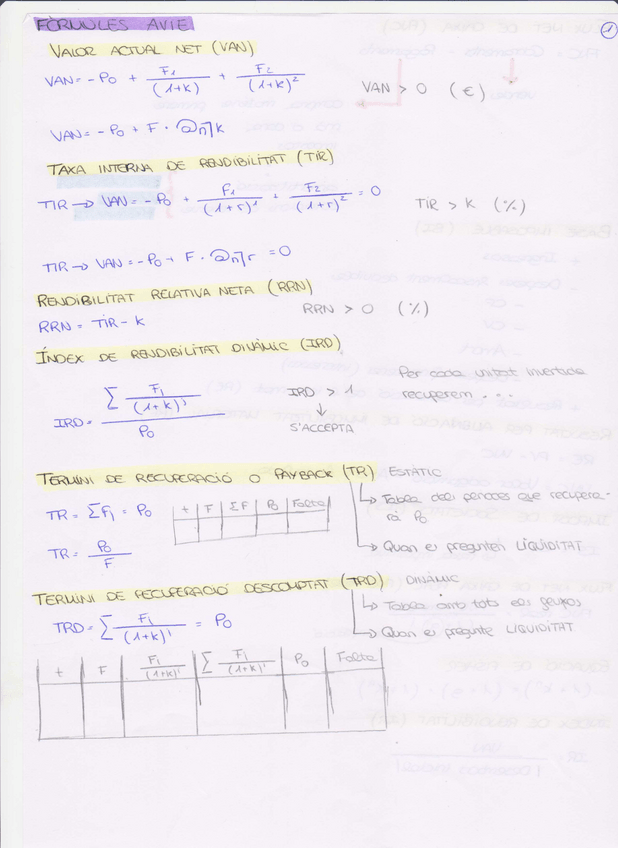 FÒRMULES AVIE
1
VALOR ACTUAL NET (VAN)
VAN = -P0 + F1/(1+k) + F2/(1+k)²
VAN > 0 (€)
VAN = -P0 + F · an⌉k
TAXA INTERNA DE RENDIBILITAT (TIR)
TIR → VAN = -P0 + F1/(1+r)¹ + F2/(1+r)² = 0
TIR > K (%)
TIR → VAN = -P0 + F · an⌉r = 0
RENDIBILITAT RELATIVA NETA (RRN)
RRN > 0 (%)
RRN = TIR - k
ÍNDEX DE RENDIBILITAT DINÀMIC (IRD)
IRD = Σ Fi/(1+k)ⁱ / P0
IRD > 1
↓
S'ACCEPTA
Per cada unitat invertida
recuperem ...
TERMINI DE RECUPERACIÓ O PAYBACK (TR) ESTÀTIC
TR = ΣFi = P0
TR = P0/F
t F ΣF P0 Falta
↳ Tabla dels períodes que recupera-
rà P0
↳ Quan et preguntin LIQUIDITAT
TERMINI DE RECUPERACIÓ DESCOMPTAT (TRD) DINÀMIC
TRD = Σ Fi/(1+k)ⁱ = P0
↳ Tabla amb tots els
↳ Quan et pregunte LIQUIDITAT
t F Fi/(1+k)ⁱ Σ Fi/(1+k)ⁱ P0 Falta